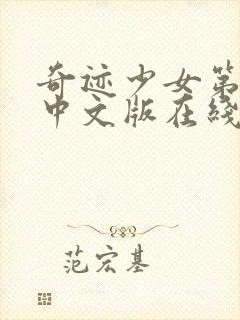 奇迹少女第
中文版在线
范宏基